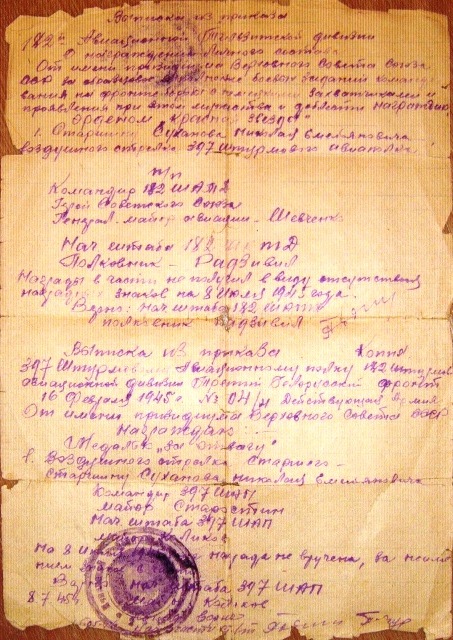 Выписка из приказа
182й Авиационной Тильзитской дивизии
О награждении личного состава
От имени президиума Верховного Совета Союза
ССР за образцовое выполнение боевых заданий командо
вания на фронте борьбы с немецкими захватчиками и
проявленные при этом мужества и доблести награждаю:
Орденом "Красной звезды"
1. Старшину Суханова Николая Емельяновича
воздушного стрелка 397 штурмового авиаполка
п/п
Командир 182 ШАТД
Герой Советского Союза
Генерал-майор авиации - Шевченко
Нач штаба 182 ШАТД
Полковник - Радзивил
Награды в части не получил в виду отсутствия
наградных знаков на 8 Июля 1945 года.
Верно: Нач штаба 182 ШАТД
полковник Радзивил
Выписка из приказа Копия
397 Штурмовому Авиационному полку 182 штурмов
авиационной дивизии Третий Белорусский фронт
16 Февраля 1945 г. № 04/н Действующая Армия
От имени призидиума Верховного Совета СССР
Награждаю: -
Медалью "за отвагу"
1. Воздушного стрелка Старшего -
старшину Суханова Николая Емельяновича
Командир 397 ШАП
майор Старостин
Нач. штаба 397 ШАП
майор
На 8 награда не вручена, за неиме
нием
штаба 397 ШАП
8.7.45г
Верно